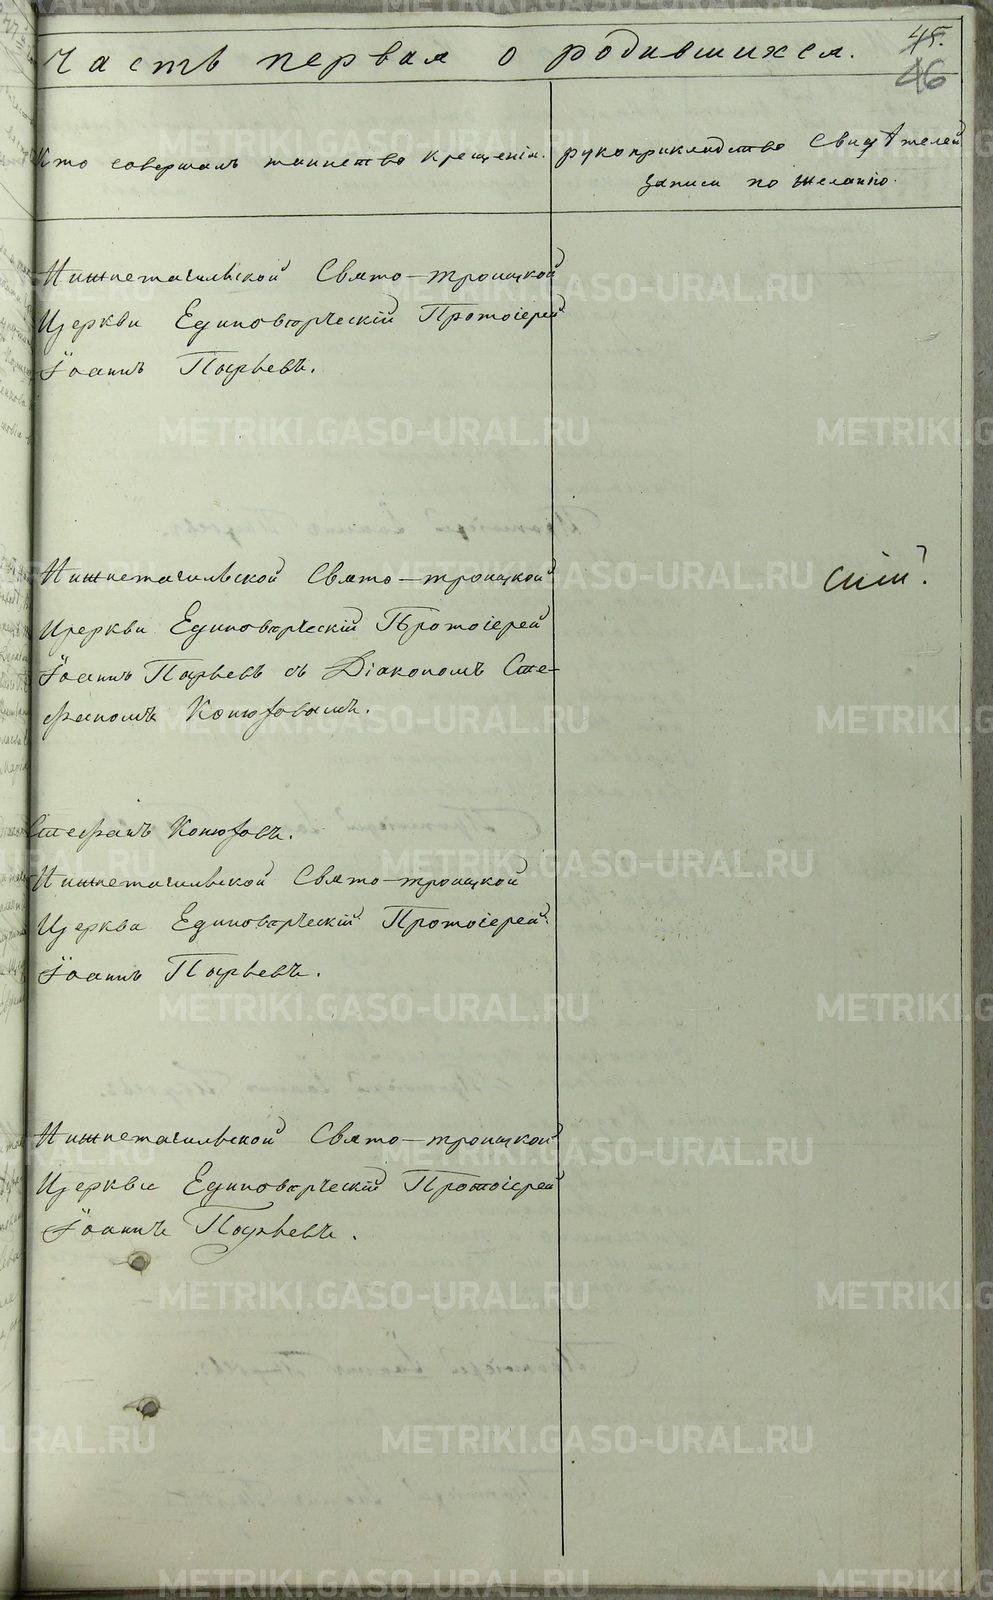 45.
46
Часть первая о родившихся.
Кто совершалъ таинство крещенія.
рукоприкладство свидѣтелей
записи по желанію.
Нижнетагильской Свято-троицкой
Церкви Единовѣрческій Протоіерей
Іоаннъ Пырьевъ.
Нижнетагильской Свято-троицкой
Церкви Единовѣрческій Протоіерей
Іоаннъ Пырьевъ съ Діакономъ Сте-
фаномъ Конюховымъ.
Стефанъ Конюховъ.
Нижнетагильской Свято-троицкой
Церкви Единовѣрческій Протоіерей
Іоаннъ Пырьевъ.
Нижнетагильской Свято-троицкой
Церкви Единовѣрческій Протоіерей
Іоаннъ Пырьевъ.
METRIKI.GASO-URAL.RU